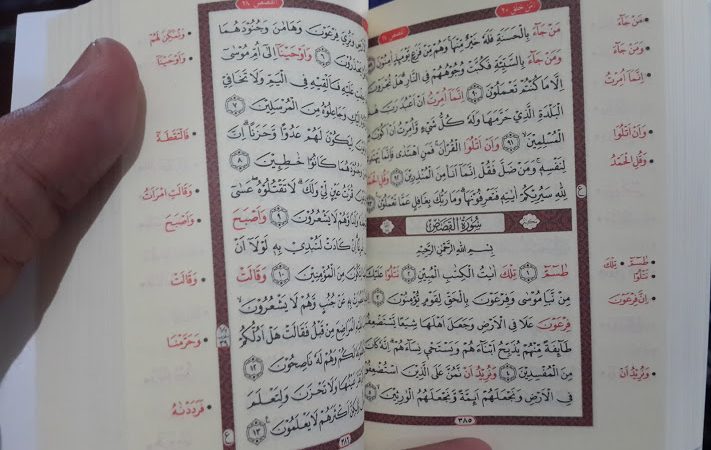 مَنْ جَٓاءَ بِالْحَسَنَةِ فَلَهُ خَيْرٌ مِنْهَا وَهُمْ مِنْ فَزَعٍ يَوْمَئِذٍ اٰمِنُونَ
وَمَنْ جَٓاءَ بِالسَّيِّئَةِ فَكُبَّتْ وُجُوهُهُمْ فِي النَّارِ هَلْ تُجْزَوْنَ
اِلَّا مَا كُنْتُمْ تَعْمَلُونَ ﴿٩٠﴾ اِنَّمَٓا اُمِرْتُ اَنْ اَعْبُدَ رَبَّ
الْبَلْدَةِ الَّذِي حَرَّمَهَا وَلَهُ كُلُّ شَيْءٍ وَاُمِرْتُ اَنْ اَكُونَ
الْمُسْلِمِينَ ﴿٩١﴾ وَاَنْ اَتْلُوَا الْقُرْاٰنَ فَمَنِ اهْتَدٰى فَاِنَّمَا يَهْتَدِي
لِنَفْسِهِ وَمَنْ ضَلَّ فَقُلْ اِنَّمَٓا اَنَا مِنَ الْمُنْذِرِينَ ﴿٩٢﴾ وَقُلِ الْحَمْدُ
لِلّٰهِ سَيُرِيكُمْ اٰيَاتِهِ فَتَعْرِفُونَهَا وَمَا رَبُّكَ بِغَافِلٍ عَمَّا تَعْمَلُونَ
سُورَةُ الْقَصَصِ
بِسْمِ اللهِ الرَّحْمٰنِ الرَّحِيمِ
طٰسٓمٓ ﴿١﴾ تِلْكَ اٰيَاتُ الْكِتَابِ الْمُبِينِ ﴿٢﴾ نَتْلُوا عَلَيْكَ
مِنْ نَبَأِ مُوسٰى وَفِرْعَوْنَ بِالْحَقِّ لِقَوْمٍ يُؤْمِنُونَ ﴿٣﴾ اِنَّ
فِرْعَوْنَ عَلَا فِي الْاَرْضِ وَجَعَلَ اَهْلَهَا شِيَعًا يَسْتَضْعِفُ
طَٓائِفَةً مِنْهُمْ يُذَبِّحُ اَبْنَٓاءَهُمْ وَيَسْتَحْيِ نِسَٓاءَهُمْ اِنَّهُ كَانَ
مِنَ الْمُفْسِدِينَ ﴿٤﴾ وَنُرِيدُ اَنْ نَمُنَّ عَلَى الَّذِينَ اسْتُضْعِفُوا
فِي الْاَرْضِ وَنَجْعَلَهُمْ اَئِمَّةً وَنَجْعَلَهُمُ الْوَارِثِينَ ﴿٥﴾
٣٨٥
مَنْ جَٓاءَ
وَمَنْ جَٓاءَ
اِنَّمَٓا اُمِرْتُ
وَاَنْ اَتْلُوَا
وَقُلِ الْحَمْدُ
طٰسٓمٓ • تِلْكَ
نَتْلُوا
اِنَّ فِرْعَوْنَ
وَنُرِيدُ اَنْ
القصص ٢٨
نُرِيَ فِرْعَوْنَ وَهَامَانَ وَجُنُودَهُمَا
وَاَوْحَيْنَٓا اِلٰٓى اُمِّ مُوسٰٓى
عَلَيْهِ فَاَلْقِيهِ فِي الْيَمِّ وَلَا تَخَافِي
وَجَاعِلُوهُ مِنَ الْمُرْسَلِينَ ﴿٧﴾
لِيَكُونَ لَهُمْ عَدُوًّا وَحَزَنًا اِنَّ
وَجُنُودَهُمَا كَانُوا خَاطِـِٔينَ ﴿٨﴾
قُرَّتُ عَيْنٍ لِي وَلَكَ لَا تَقْتُلُوهُ عَسٰٓى
وَهُمْ لَا يَشْعُرُونَ ﴿٩﴾ وَاَصْبَحَ
اِنْ كَادَتْ لَتُبْدِي بِهِ لَوْلَٓا اَنْ
مِنَ الْمُؤْمِنِينَ ﴿١٠﴾ وَقَالَتْ
بِهِ عَنْ جُنُبٍ وَهُمْ لَا يَشْعُرُونَ
الْمَرَاضِعَ مِنْ قَبْلُ فَقَالَتْ هَلْ اَدُلُّكُمْ
لَكُمْ وَهُمْ لَهُ نَاصِحُونَ ﴿١٢﴾
عَيْنُهَا وَلَا تَحْزَنَ وَلِتَعْلَمَ
اَكْثَرَهُمْ لَا يَعْلَمُونَ ﴿١٣﴾
٣٨٦
وَنُمَكِّنَ لَهُمْ
وَاَوْحَيْنَٓا
فَالْتَقَطَهُٓ
وَقَالَتِ امْرَاَتُ
وَاَصْبَحَ
وَقَالَتْ
وَحَرَّمْنَا
فَرَدَدْنَاهُ